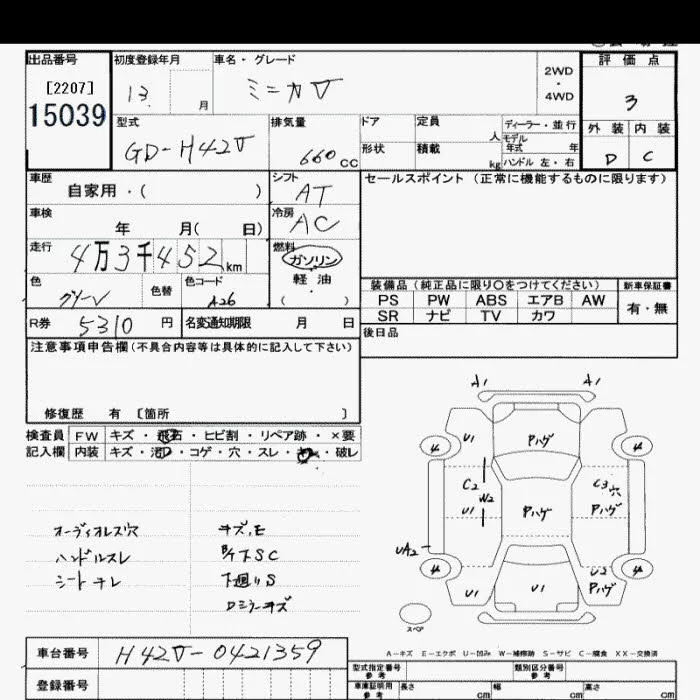 出品番号
[2207]
15039
初度登録年月
13 月
車名・グレード
ミニカV
2WD
・
4WD
評価点
3
外装 内装
D C
型式
GD-H42V
排気量
660 CC
ドア
形状
定員
人
積載
kg
ディーラー・並行
モデル年式 年
ハンドル 左・右
車歴
自家用・( )
シフト
AT
セールスポイント (正常に機能するものに限ります)
車検
年 月( 日)
冷房
AC
走行
4万3千452km
燃料
ガソリン
軽油
( )
色
グリーン
色替
色コード
A26
装備品 (純正品に限り○をつけてください)
PS PW ABS エアB AW
SR ナビ TV カワ
新車保証書
有・無
R券 5310 円
名変通知期限 月 日
後日品
注意事項申告欄 (不具合内容等は具体的に記入して下さい)
修復歴 有 [箇所 ]
検査員 FW キズ・飛石・ヒビ割・リペア跡・×要
記入欄 内装 キズ・コゲ・穴・スレ・破レ
オーディオレス穴
ハンドルスレ
シートキレ
キズ,E
下SC
下廻りS
Dミラーキズ
A1 A1
U1 Pハゲ
4 4
C2 W2 U1
Pハゲ
C3穴 Pハゲ
UA2
4 4
U1 U1 U2 Pハゲ
スペア
A-キズ E-エクボ U-凹み W-補修跡 S-サビ C-腐食 XX-交換済
車台番号 H42V-0421359
登録番号
型式指定番号 参考
類別区分番号 参考
車庫証明用 参考 長さ cm 幅 cm 高さ cm